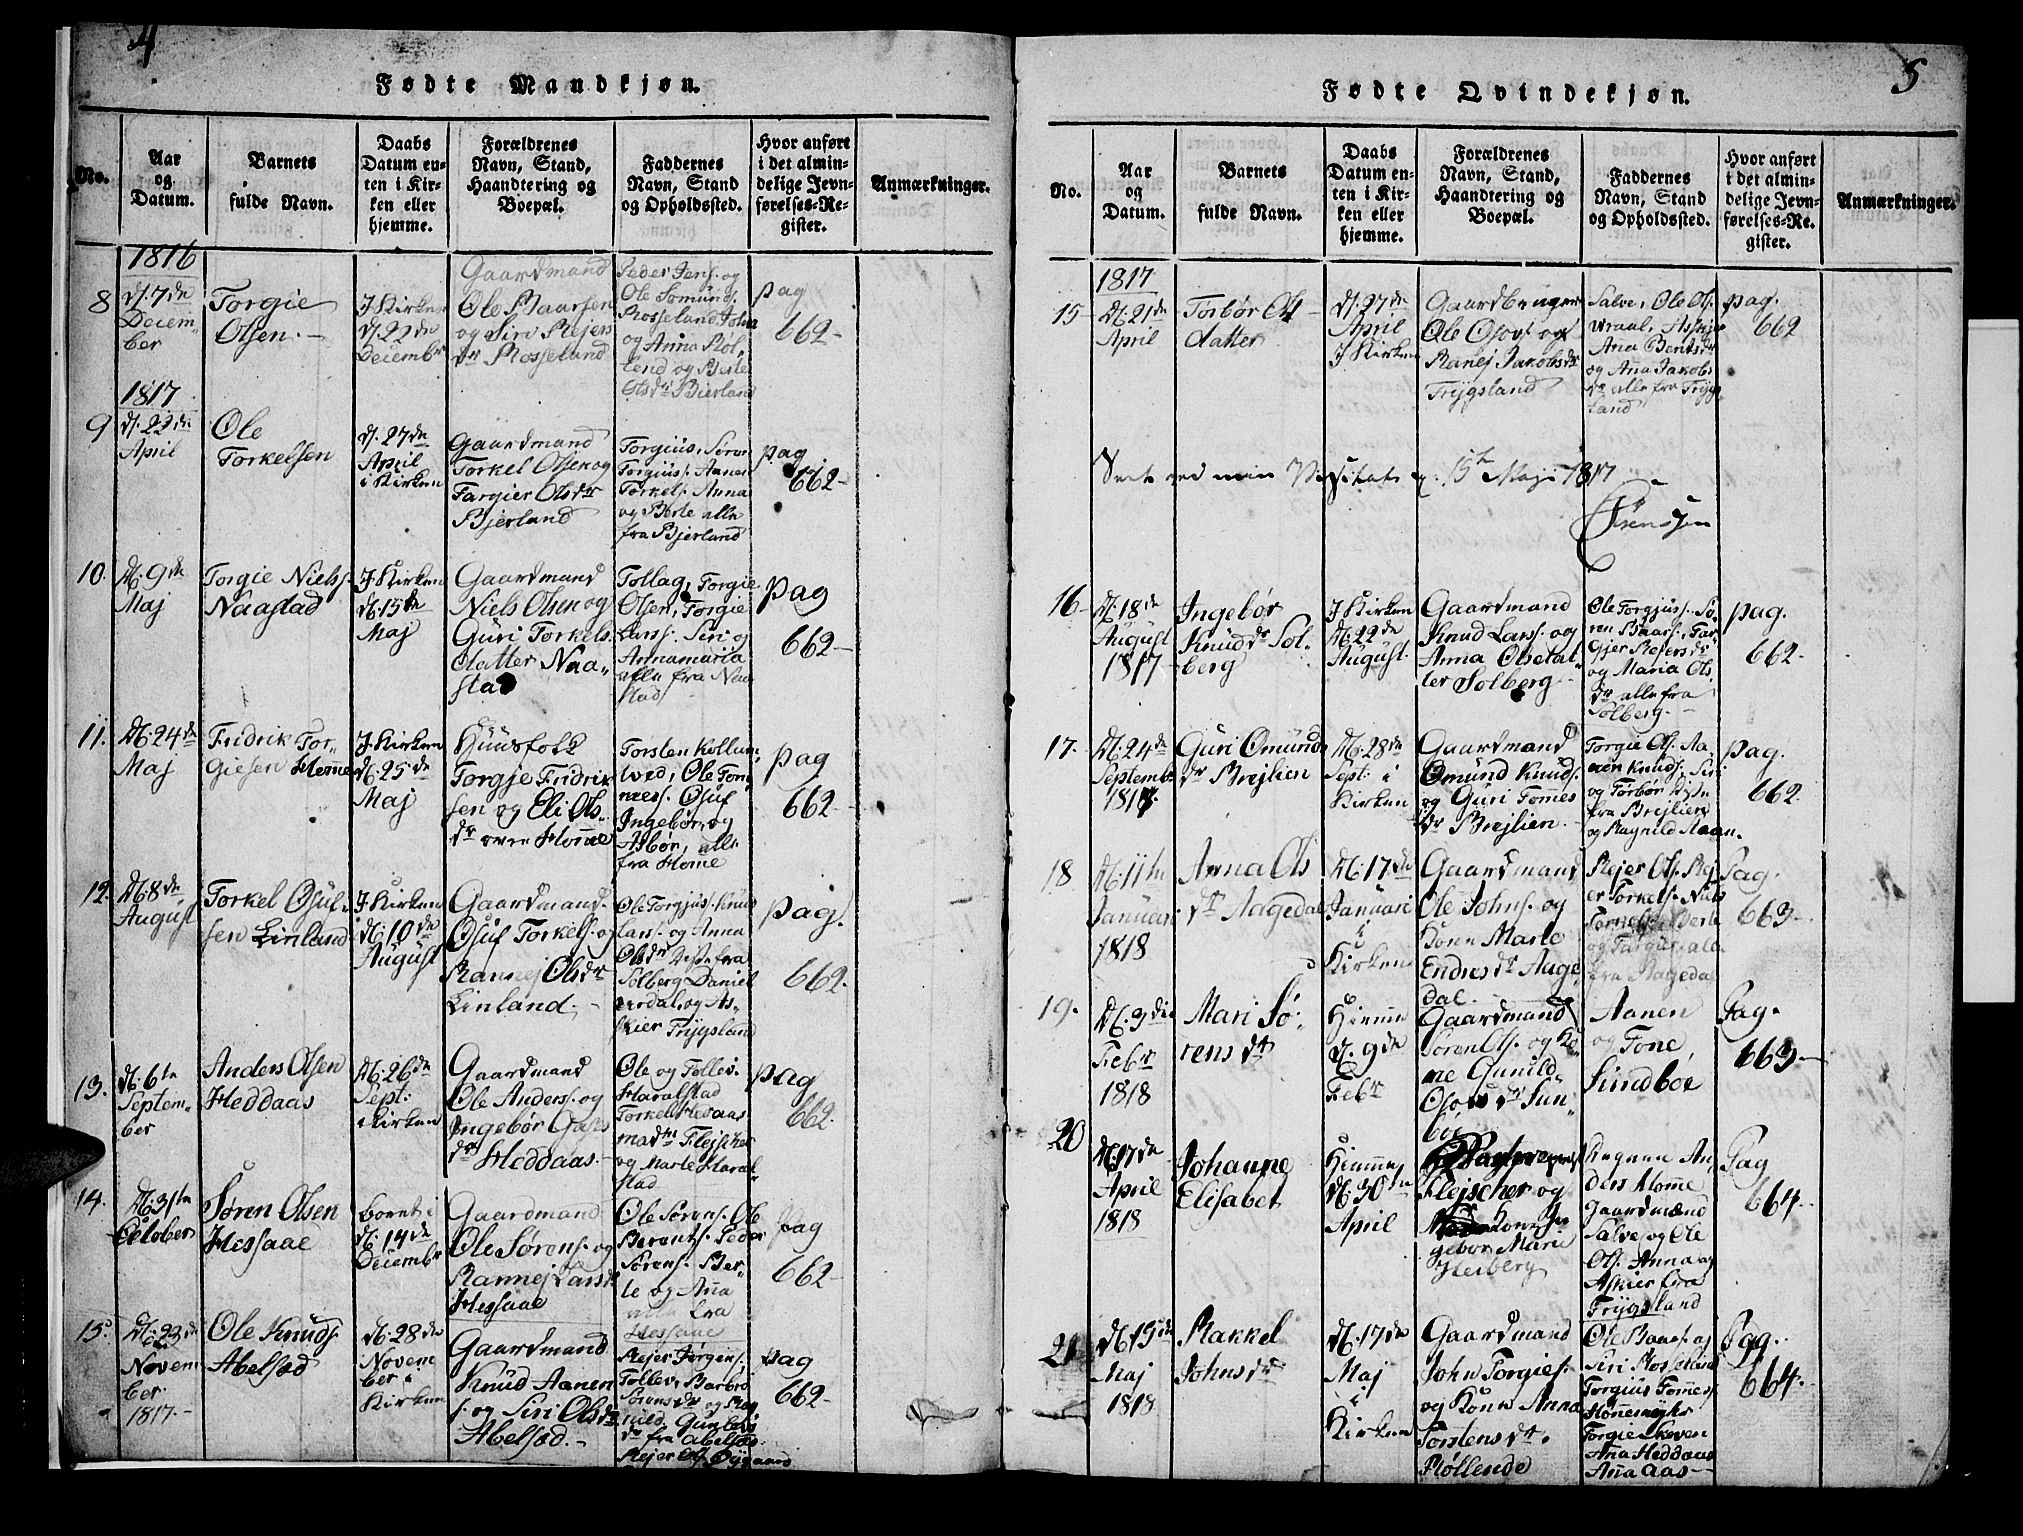 4
Fødte Mandkjøn.
No.
Aar
og
Datum.
Barnets
fulde Navn.
Daabs
Datum en-
ten i Kir-
ken eller
hjemme.
Forældrenes
Navn, Stand,
Haandtering og
Boepæl.
Faddernes
Navn, Stand
og Opholdssted.
Hvor anført
i det almin-
delige Jevn-
førelses-Re-
gister.
Anmærkninger.
1816
8
d. 7de
Deiem-
ber
Torgie
Olsen.
I Kirken
d. 22de
Deiembr
Gaardmand
Ole Baarsen
og Siri Rejers
dr Rosseland
Peder Jens. og
Ole Somund.
Rosseland John
og Anna Rol-
lend og Berte
Olsdr Bierland
pag
662
1817
9
d. 22de
April
Ole
Torkelsen
d. 27de
April
i Kirken
Gaardmand
Torkel Olsen og
Targier Olsdr
Bjerland
Torgius, Søren
Torgiuss. Aanen
Torkels. Anna
og Berte alle
fra Bjerland
pag
662
10.
D. 9de
Maj
Torgie Niels.
Naastad
I Kirken
D. 15de
Maj
Gaardmand
Niels Olsen og
Guri Torkels
datter Naa-
stad
Tollag, Torgie
Olsen, Torgie
Larss. Siri og
Annamaria
alle fra Naa
stad
pag
662
11.
D. 24de
Maj
Fridrik Tor-
giesen Home
I Kirken
D. 25de
Maj
Huusfolk
Torgje Fridrik
sen og Eli Ols-
dr oven Home
Torsten Kollum
tved, Ole Tong
næss. Osuf
Ingebør, og
Asbør, alle
fra Home
pag
662
12.
D. 8de
August
Torkel Osuf-
sen Linland
I Kirken
D. 10de
August
Gaardmand.
Osuf Torkels. og
Rannej Olsdr
Linland.
Ole Torgjus. Knud
Lars. og Anna
Olsdr disse fra
Solberg Daniel
og As-
kier Trygsland
pag.
662.
13.
D. 6te
Septem-
ber
Anders Olsen
Heddaas
D. 26de
Sept:
i Kirken
Gaardmand
Ole Anders. og
Ingebør
dr Heddaas
Ole og Tollev.
Haralstad
Torkel Hedaas
madm Flejscher
og Marte Haral-
stad
pag
662.
14.
D. 31te
October
Søren Olsen
Hessaae
D. 14de
Decembr
Gaardmand
Ole Sørens. og
Rannej Lars
Hessaae
Ole Sørens. Ole
Berants. Peder
Sørens. Ber-
te og Ana
alle fra
Hessaae
pag
662
15.
D. 23de
Novem
ber
1817.
Ole Knuds.
Abelsæd
D. 28de
Novem
ber i
Kirken
Gaardmand
Knud Aanen
s. og Siri Olsdr
Abelsæd.
Rejer Jørgens.
Tollev, Barbro
Sørensdr og Rag
nild
dr fra Abelsæd
Rejer Ols. Øygaard
pag
662
5
Fødte Qvindekjøn.
No.
Aar
og
Datum.
Barnets
fulde Navn.
Daabs
Datum en-
ten i Kir-
ken eller
hjemme.
Forældrenes
Navn, Stand,
Haandtering og
Boepæl.
Faddernes
Navn, Stand
og Opholdssted.
Hvor anført
i det almin-
delige Jevn-
førelses-Re-
gister.
Anmærkninger.
1817
15
D. 21de
April
Torbør Ols
datter
d. 27de
April
I Kirken
Gaardbruger
Ole Osufs. og
Ranej Jakobsdr
Trygsland
Salve, Ole Ols.
Askje
Ana Bentsdr
og Ana Jakobs
dr alle fra Tryg-
land
pag.
662
ved min Visitats d. 15de Maji 1817
16
D. 18de
August
1817
Ingebør
Knudsdr Sol-
berg
I Kirken
D. 22de
August
Gaardmand
Knud Lars. og
Anna Olsdat-
ter Solberg
Ole Torgjuss. Sø-
ren Baars. Tar
gjer Rejersdr
og Maria Ols
dr alle fra
Solberg.
pag.
662.
17.
D. 24de
Septembr
1817.
Guri Omunds
dr Brejlien
D. 28de
Sept: i
Kirken
Gaardmand
Omund Knuds.
og Guri Tommes
dr Brejlien
Torgie Ols. Aa-
nen Knuds. Siri
og Torbør disse
fra Brejlien
og Ragnild Aaan.
pag.
662.
18
D. 11te
Januari
1818
Anna Ols
dr Aagedal
D. 17de
Januari
i
Kirken
Gaardmand
Ole Johns. og
Kone Marte
Endresdr Auge
dal.
Rejer Ols. Rej
er Torkels. Nils
Berte
og Targier alle
fra Aagedal
Pag.
663
19.
D. 3die
Febr
1818
Mari Sø-
rensdr
Hiemme
d. 9de
Febr
Gaardmand
Søren Ols. og Ko-
ne Gunild
Osufsdr Sun-
boe
Aanen
og Tone
Sindboe
Pag.
663
20
D. 17de
April
1818
Johanne
Elisabet
Hiemme
D. 30te
April
Flejscher og
Kone In
gebor Marie
Heiberg
An-
ders Home
Gaardmænd
Salve og Ole
Ols. Anna og
Askier fra
Trygsland
Pag
664
21
D. 15de
Maj
1818
Rakkel
Johnsdr
D. 17de
Maj
i
Kirken
Gaardmand
John Torgies.
og Kone Anna
Torstensdr.
Røllende
Ole Baars. og
Siri Rosseland
Torgius Tommes.
Homemyhr
Torgie Skeven
Ana Heddaas
Ana Aas
Pag.
664.